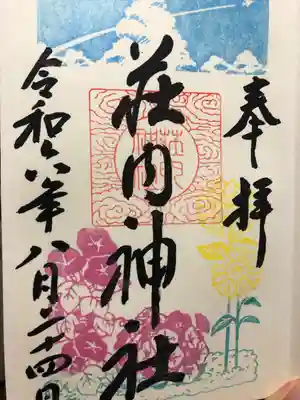 奉拝
荘内神社
令和六年八月二十四日